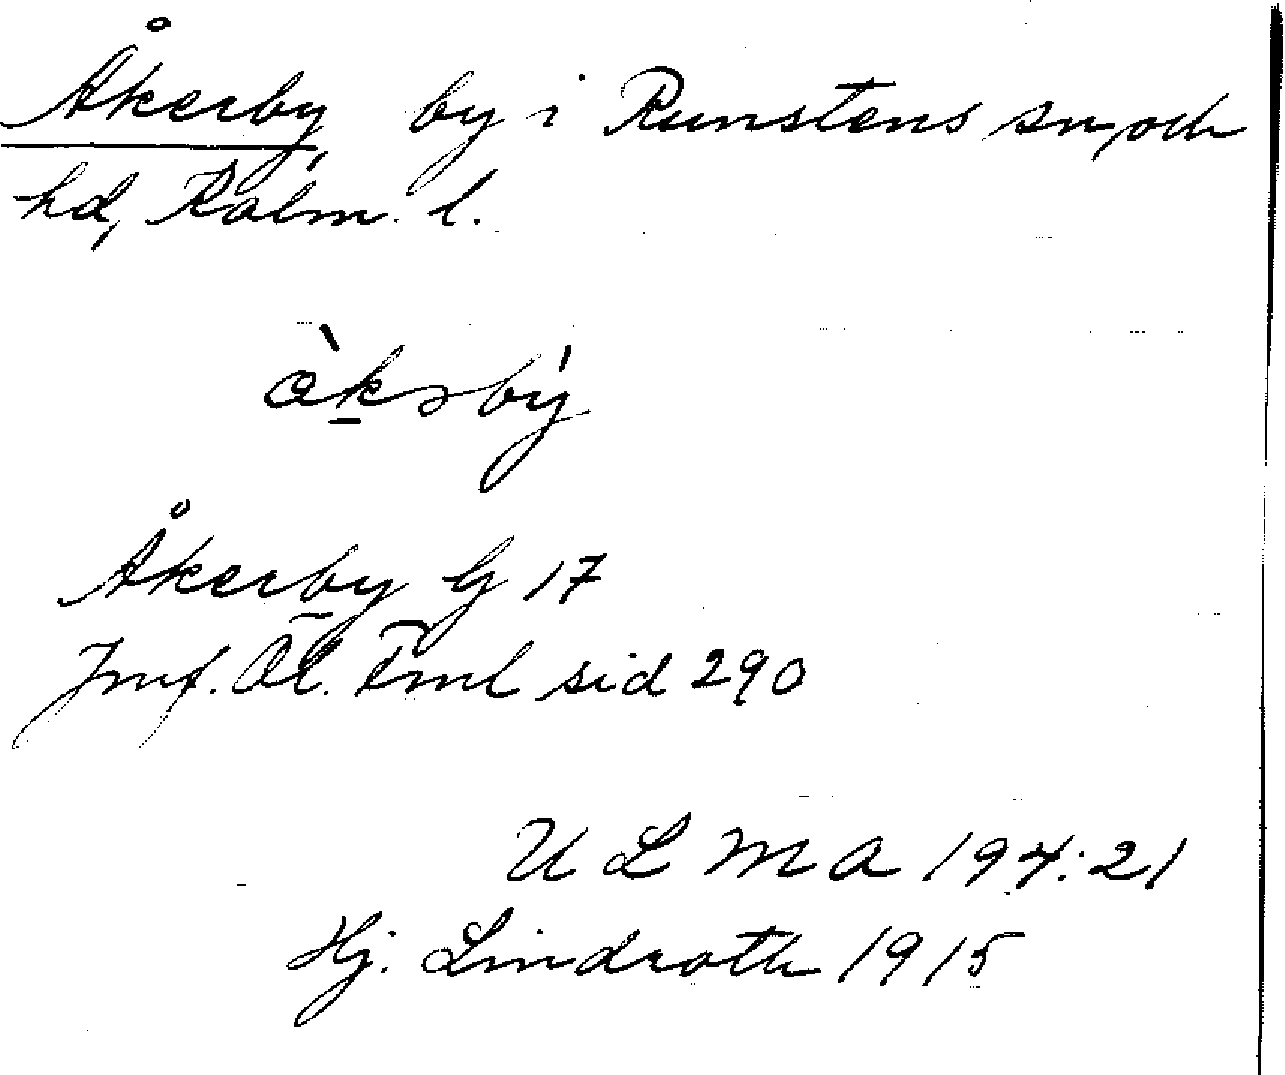 Åkerby by i Runstens sn och
hd, Kalm. l.
Åkerby G 17
Jmf. Öl. Fml sid 290
U L M A 194:21
Hj. Lindroth 1915